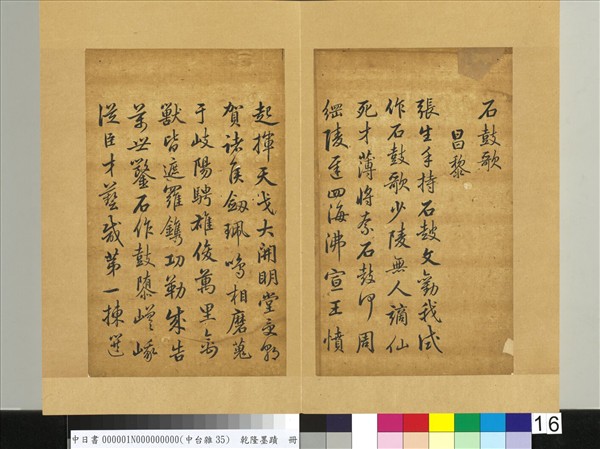 石鼓歌
昌黎
張生手持石鼓文勸我試
作石鼓歌少陵無人謫仙
死才薄將奈石鼓何周
綱陵遲四海沸宣王憤
起揮天戈大開明堂受朝
賀諸侯劔珮鳴相磨蒐
于岐陽騁雄俊萬里禽
獸皆遮羅鐫功勒成告
萬世鑿石作鼓隳嵯峨
從臣才藝咸第一揀選
中日書 000001N000000000(中台雜 35) 乾隆墨蹟 冊
16